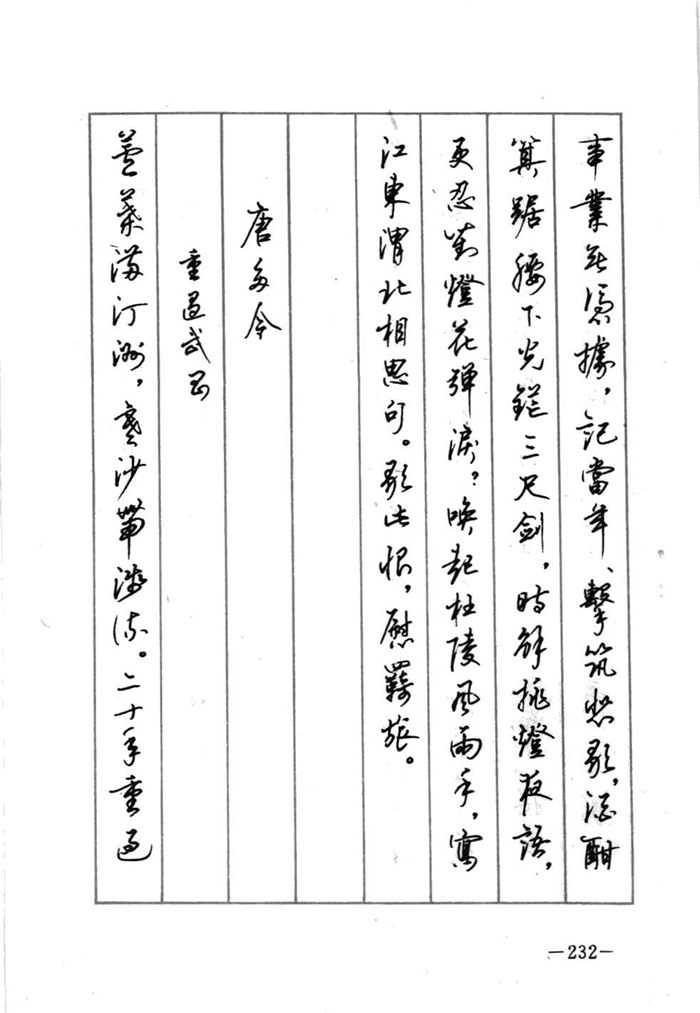 事業無憑據，記當年、擊筑悲歌，酒酣
箕踞腰下光鋩三尺劍，時解挑燈夜語，
更忍對燈花彈淚？喚起杜陵風雨手，寫
江東渭北相思句。歌此恨，慰羈旅。
唐多令
重過武昌
蘆葉滿汀洲，寒沙帶淺流。二十年重過
—232—